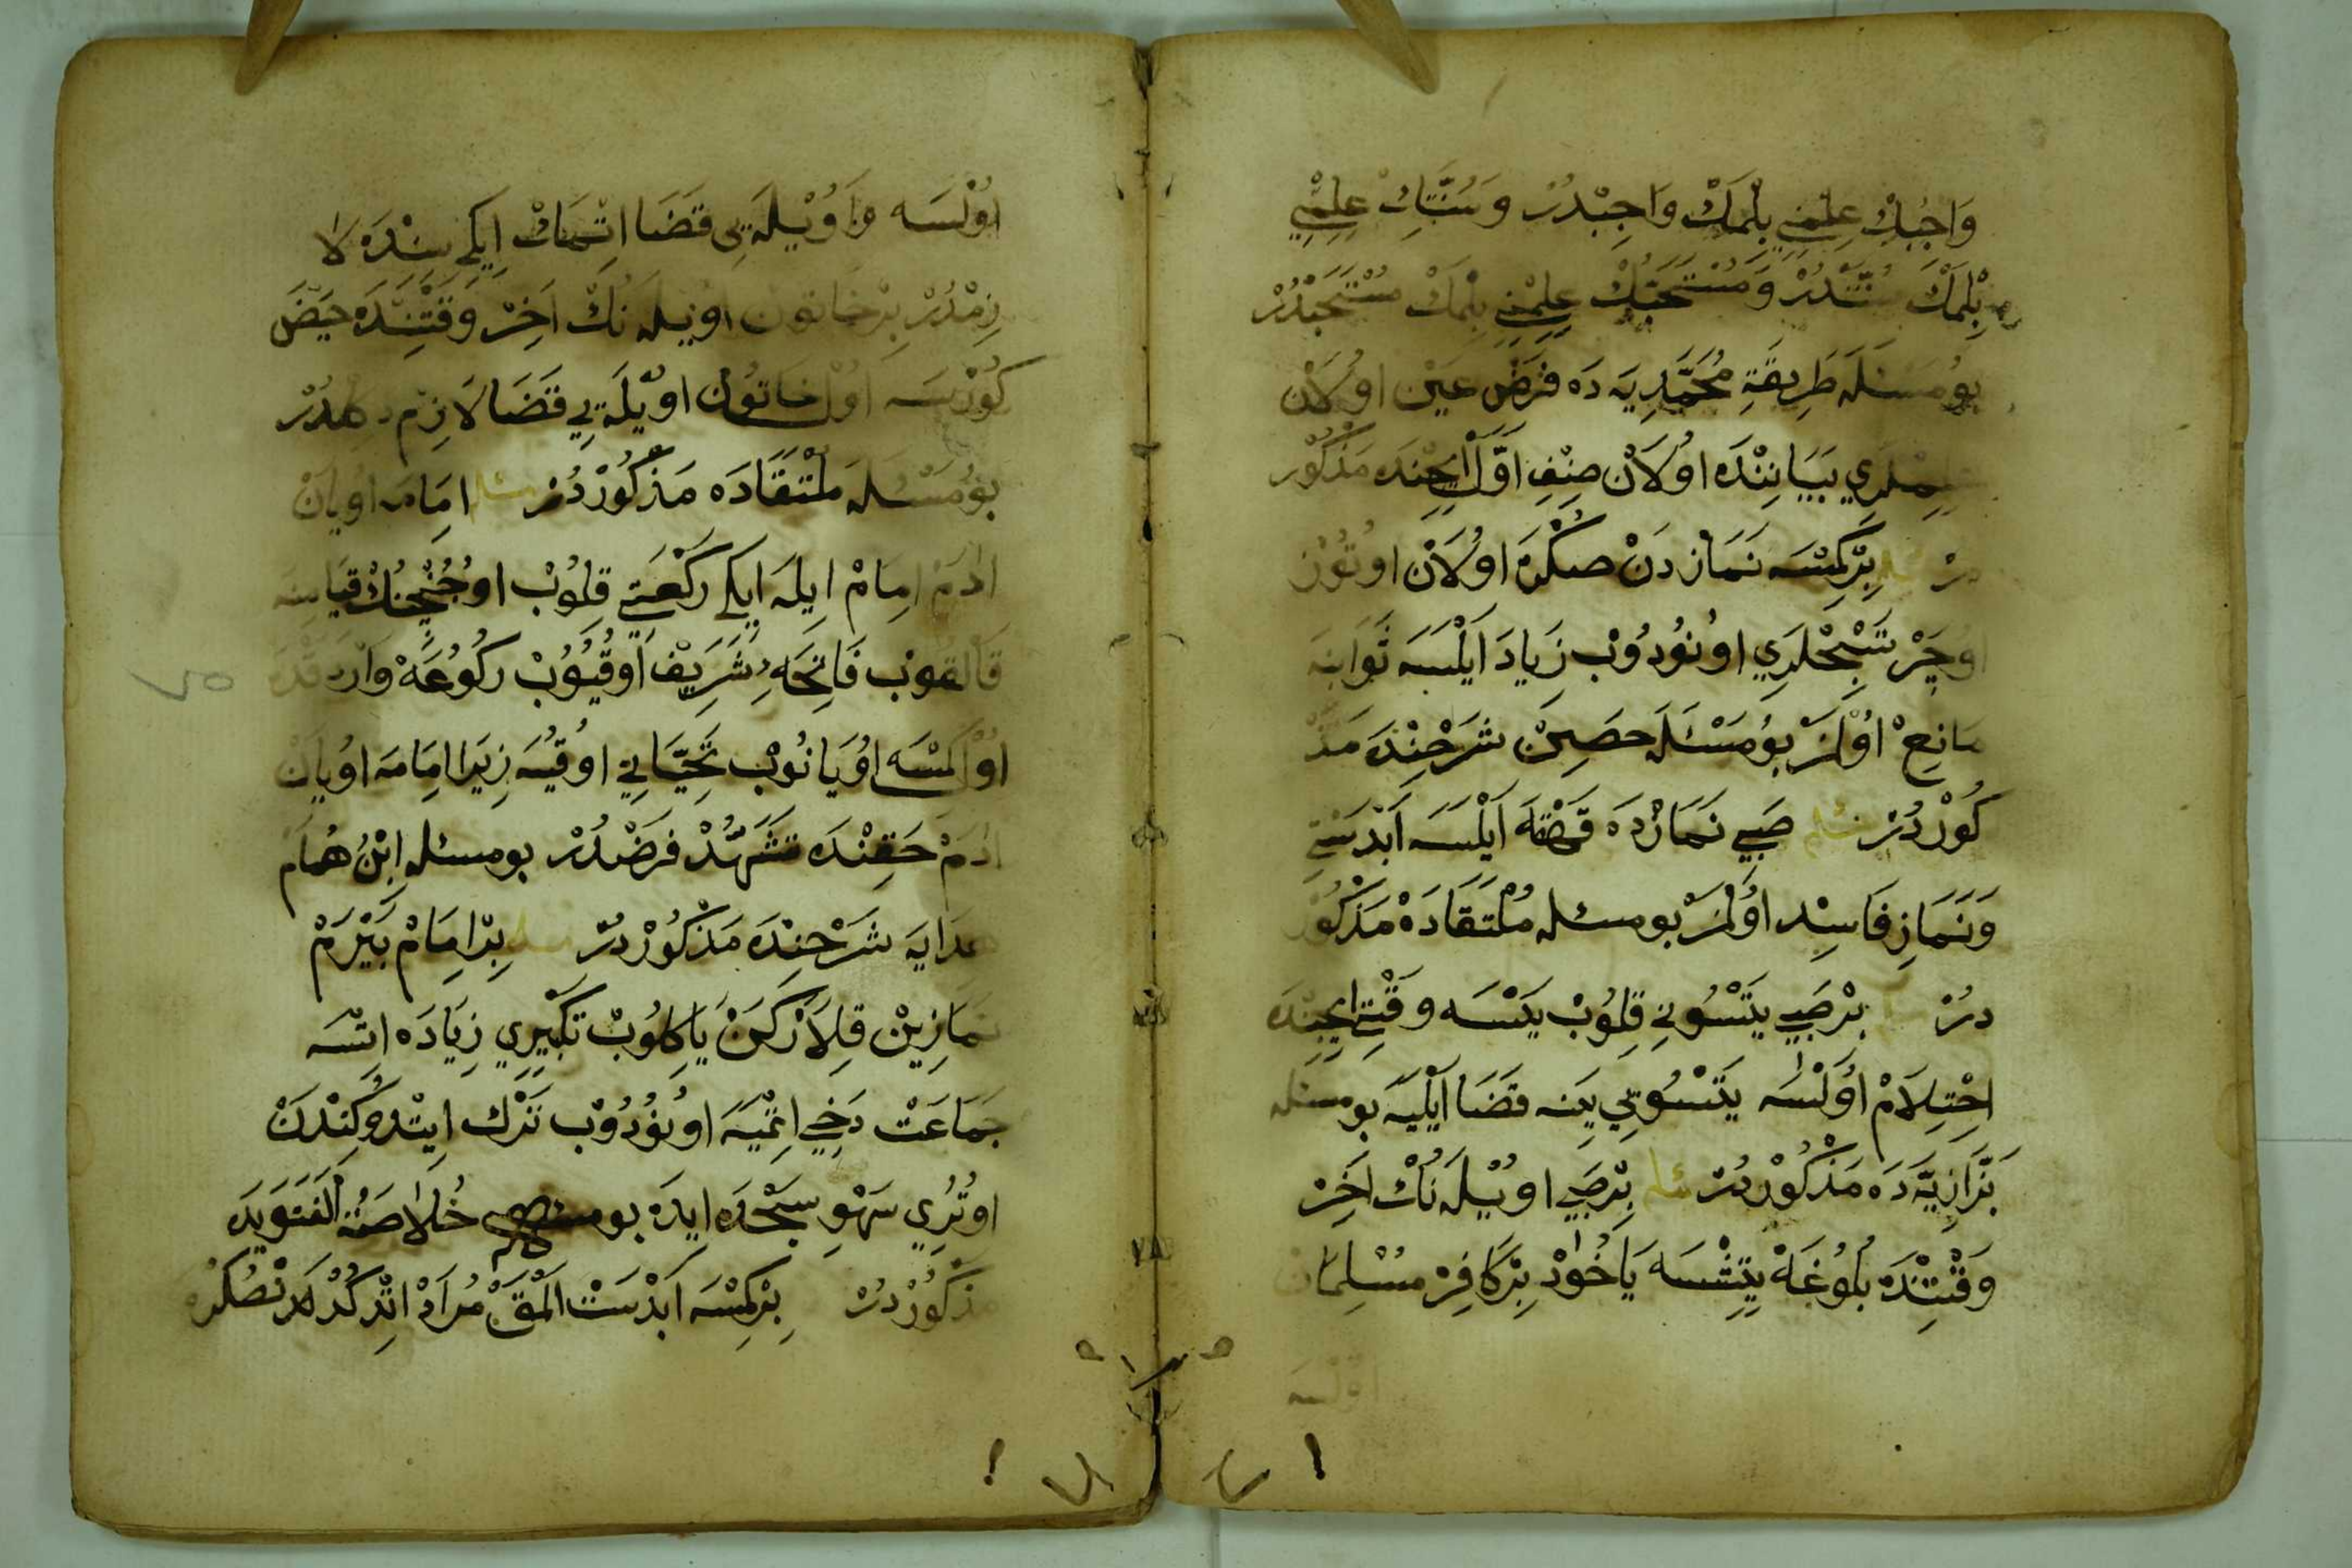 وَاجِبُكْ عِلْمِنِي بِلْمَكْ وَاجِبْدُرْ وَ سُنَّتِكْ عِلْمِنِي
بِلْمَكْ سُنَّتْدُرْ وَ مُسْتَحَبُّكْ عِلْمِنِي بِلْمَكْ مُسْتَحَبْدُرْ
بُو مَسْئَلَه طَرِيقَةِ مُحَمَّدِيَه دَه فَرْضِ عَيْن اوُلَانْ
عِلِمْلَرِي بَيَانِنْدَه اوُلَانْ صِنْفِ اَوَّل اِيچِنْدَه مَذْكُور
دُرْ مسئله بِرْ كِمْسَه نَمَازدَنْ صُكْرَه اوُلَانْ اوُتُوزْ
اوُچَرْ تَسْبِحْلَرِي اوُنُودُوبْ زِيَادَ اَيْلَسَه ثَوَابَنَه
مَانِعْ اوُلْمَزْ بُو مَسْئَلَه حِصِينْ شَرْحِنْدَه مَذْ
كُورْدُرْ مسئله صَبِي نَمَازْدَه قَهْقَه اَيْلَسَه اَبْدَسْتِي
وَنَمَازِ فَاسِد اوُلْمَزْ بو مسئله مُلْتَقَادَه مَذْكُور
دُرْ بِرْ صَبِي يَتْسُونِي قِلُوبْ يَتْسَه وَقْتِ اِيچِنْدَه
اِحْتِلَامْ اوُلْسَه يَتْسُويِي يَنَه قَضَا اَيْلَيَه بو مسئله
بَزَّازِيَّه دَه مَذْكُورْدُرْ مسئله بِرْ صَبِي اوُيْلَه نُكْ اَخِرْ
وَقْتِنْدَه بُلُوغَه يِتِشْسَه يَاخُودْ بِرْ كَافِرْ مُسْلِمَان
اولسه
اوُلْسَه اوُيْلَه يِي قَضَا اِتْمَكْ اِيكِي سِنْدَه لَا
زِمْدُرْ بِرْ خَاتُون اوُيْلَه نُكْ اَخِرْ وَقْتِنْدَه حَيْضْ
كُورْسَه اوُلْ خَاتُون اوُيْلَه يِي قَضَا لَازِمْ دَكُلْدُرْ
بُو مَسْئَله مُلْتَقَادَه مَذْكُورْدُرْ مسئله اِمَامَه اوُيَانْ
اَدَمْ اِمَامْ اِيلَه اِيكِي رَكْعَتِي قِلُوبْ اوُچُنْجِنُكْ قِيَامِنَه
قَالْقُوبْ فَاتِحَهءِ شَرِيفْ اوُقُيُوبْ رُكُوعَه وَارْدِقْدَه
اوُلْ كِمْسَه اوُيَانُوبْ تَحِيَّاتِي اوُقُيَه زِيرَا اِمَامَه اوُيَانْ
اَدَمْ حَقِنْدَه تَشَهُّدْ فَرْضْدُرْ بو مسئله اِبْنُ هُمَام
هِدَايَه شَرْحِنْدَه مَذْكُورْدُرْ مسئله بِرْ اِمَامْ بَيْرَمْ
نَمَازِينْ قِلَارْكَنْ يَاكِلُوبْ تَكْبِيرِي زِيَادَه اِتْسَه
جَمَاعَتْ دَخِي اِتْمَيَه اوُنُودُوبْ تَرْك اِيتْدُوكِنْدَنْ
اوُتُرِي سَهْوِ سَجْدَه اِيدَه بو خُلَاصَةُ الْفَتَوَيدَه
مَذْكُورْدُرْ بِرْ كِمْسَه اَبْدَسْتْ اَلْمَقْ مُرَادْ اِتْدِكْدَنْصُكْرَه